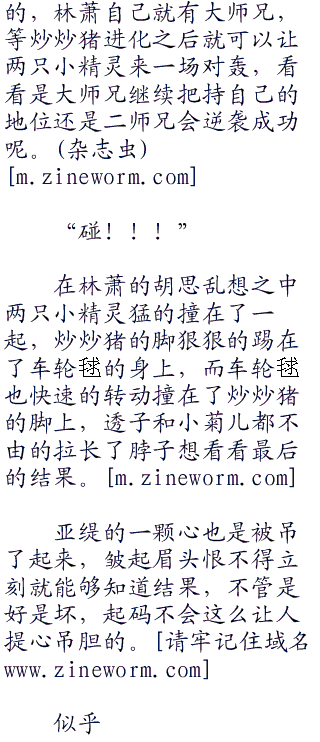 的，林萧自己就有大师兄，
等炒炒猪进化之后就可以让
两只小精灵来一场对轰，看
看是大师兄继续把持自己的
地位还是二师兄会逆袭成功
呢。(杂志虫)
[m.zineworm.com]
“碰！！！”
在林萧的胡思乱想之中
两只小精灵猛的撞在了一
起，炒炒猪的脚狠狠的踢在
了车轮毬的身上，而车轮毬
也快速的转动撞在了炒炒猪
的脚上，透子和小菊儿都不
由的拉长了脖子想看看最后
的结果。[m.zineworm.com]
亚缇的一颗心也是被吊
了起来，皱起眉头恨不得立
刻就能够知道结果，不管是
好是坏，起码不会这么让人
提心吊胆的。[请牢记住域名
www.zineworm.com]
似乎